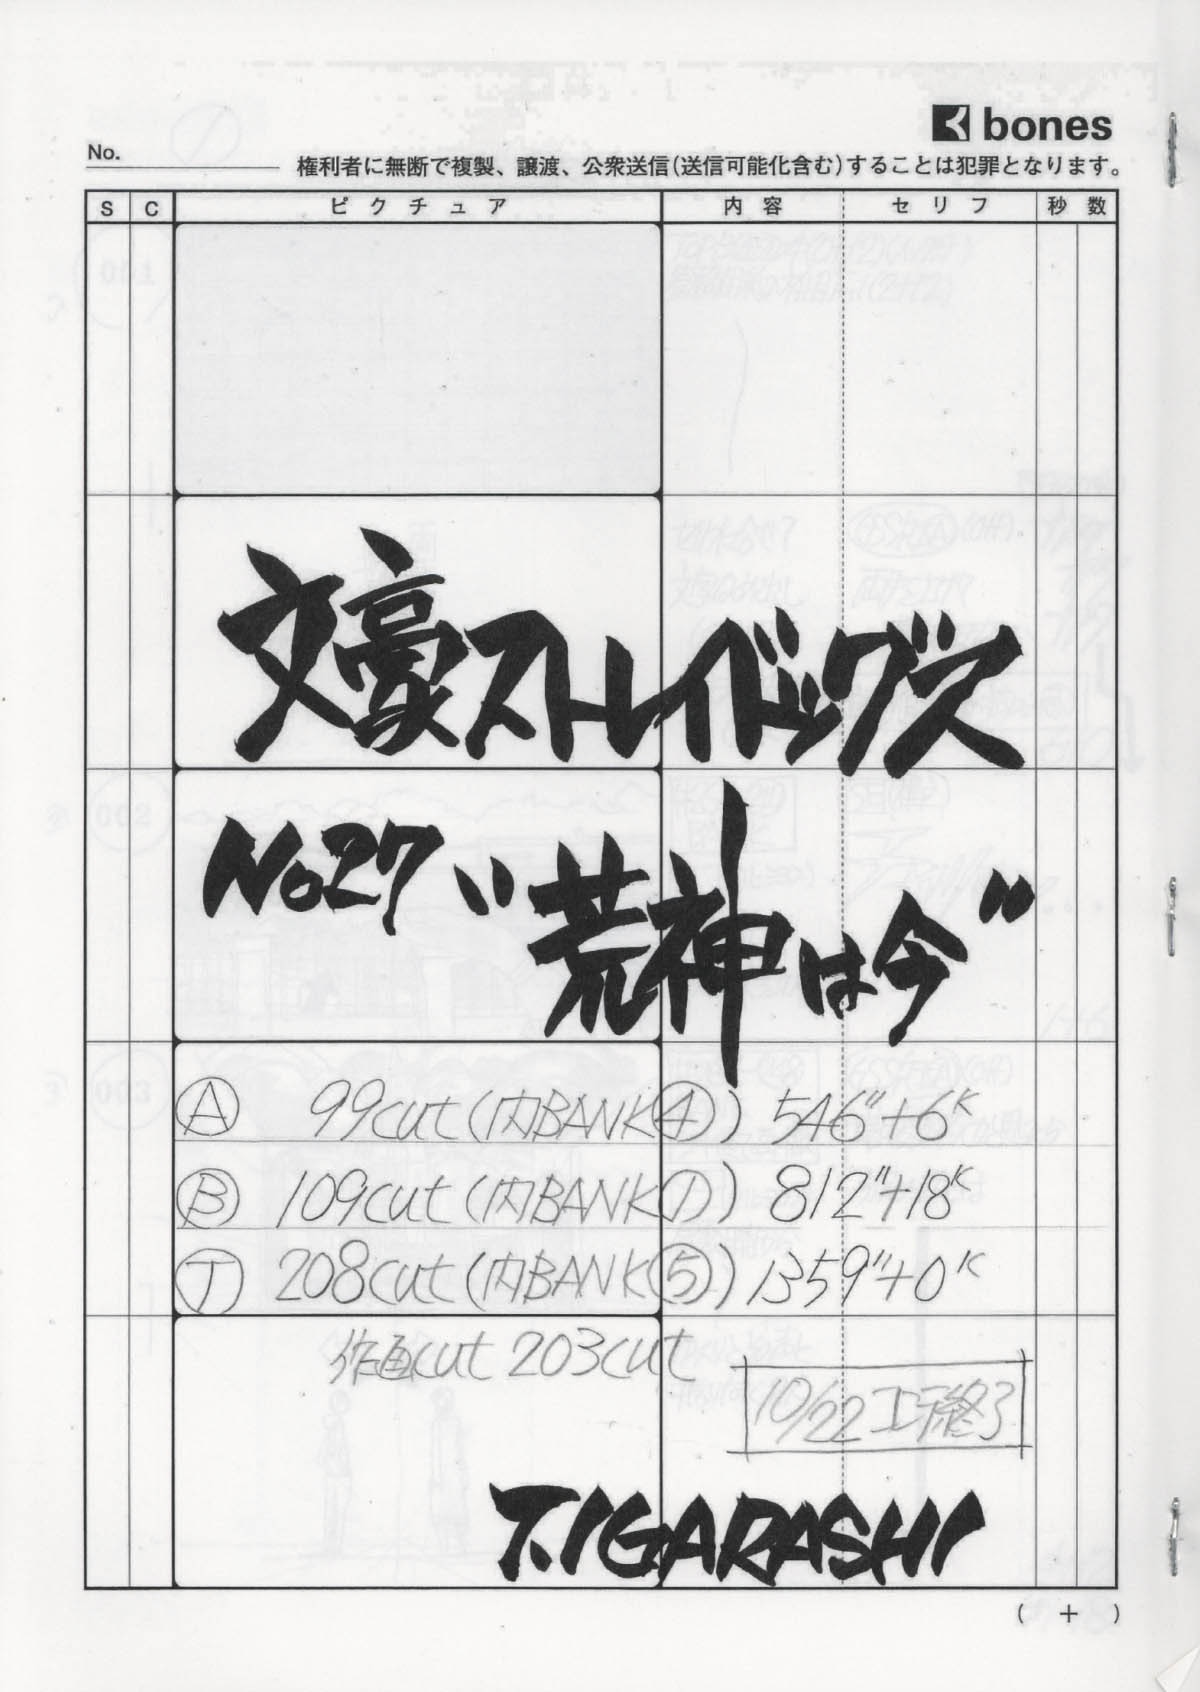 bones
No.
権利者に無断で複製、譲渡、公衆送信(送信可能化含む)することは犯罪となります。
S C ピクチュア 内容 セリフ 秒数
文豪ストレイドッグス
No27 "荒神は今"
Ⓐ 99cut(内BANK④) 546"+6K
Ⓑ 109cut(内BANK①) 812"+18K
Ⓣ 208cut(内BANK⑤) 1359"+0K
作画cut 203cut
10/22 コンテ終了
T.IGARASHI
( + )